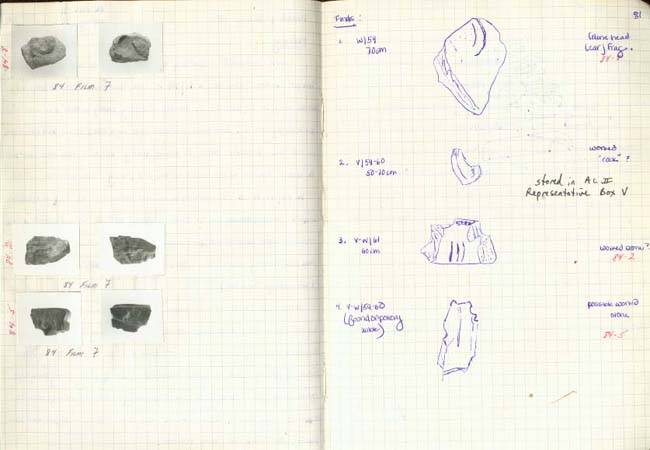 84-4
84 Film 7
84-2
84 Film 7
84-5
84 Film 7
81
Finds:
1. W/59
70cm
84-4
2. V/59-60
50-70cm
worked
stored in AC II
Representative Box V
3. V-W/61
60cm
worked stone?
84-2
4. V-W/59-60
(found on
possible worked
stone
84-5